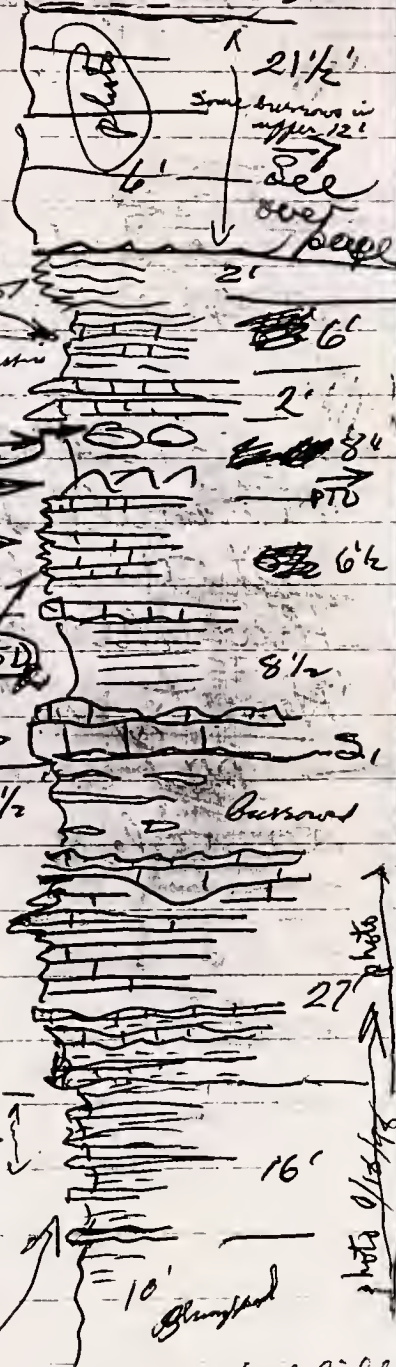 photo
21 1/2'
Some burrows in
upper 12'
6'
See
over
page
2'
6'
2'
8"
PTO
6 1/2
8 1/2
burrowed
photo
27'
16'
photo
10'
slumped